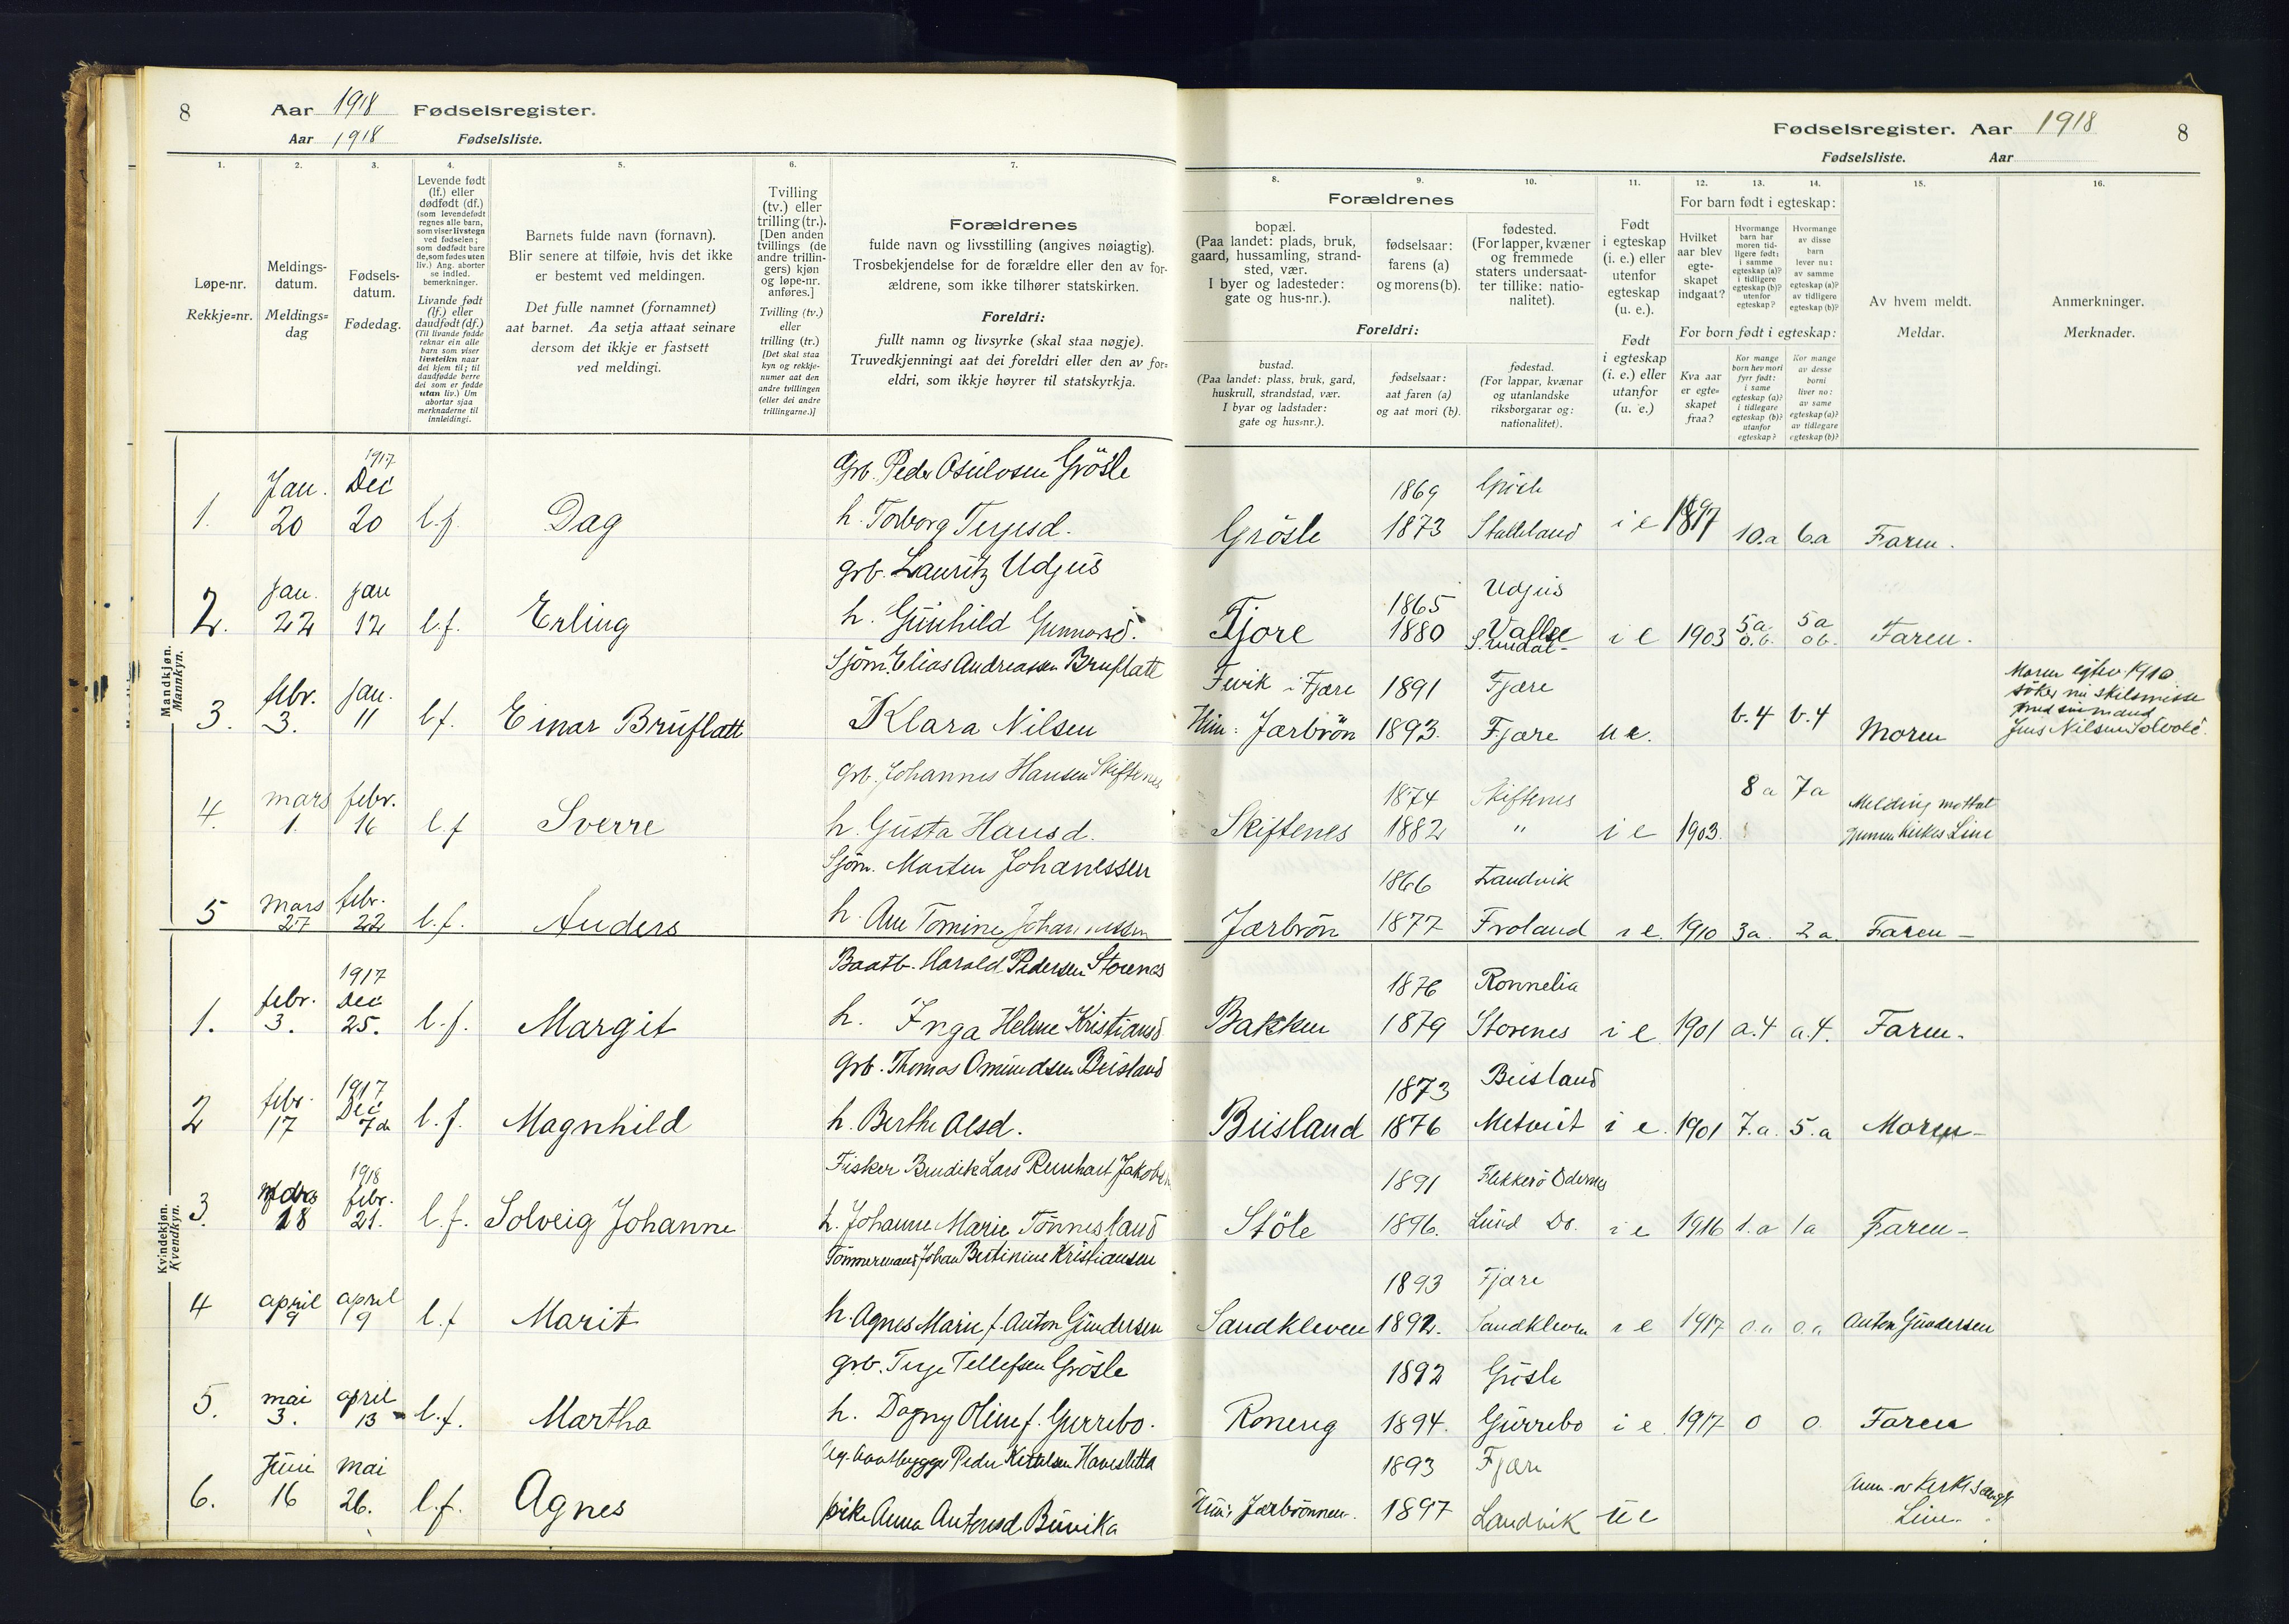 8 Aar 1918 Fødselsregister.
Aar 1918 Fødselsliste.
1.
Løpe-nr.
Rekkje-nr.
2.
Meldings-
datum.
Meldings-
dag
3.
Fødsels-
datum.
Fødedag.
4.
Levende født
(lf.) eller
dødfødt (df.)
(som levendefødt
regnes alle barn,
som viser livstegn
ved fødselen;
som dødfødt bare
de, som fødes uten
liv.) Ang. aborter
se indled.
bemerkninger.
Livande født
(lf.) eller
daudfødt (df.)
(Til livande fødde
reknar ein alle
barn som viser
livsteikn naar
dei kjem til; til
daudfødde berre
dei som er fødde
utan liv.) Um
abortar sjaa
merknaderne til
innleidingi.
5.
Barnets fulde navn (fornavn).
Blir senere at tilføie, hvis det ikke
er bestemt ved meldingen.
Det fulle namnet (fornamnet)
aat barnet. Aa setja attaat seinare
dersom det ikkje er fastsett
ved meldingi.
6.
Tvilling
(tv.) eller
trilling (tr.).
[Den anden
tvillings (de
andre trillin-
gers) kjøn
og løpe-nr.
anføres.]
Tvilling (tv.)
eller
trilling (tr.)
[Det skal staa
kyn og rekkje-
numer aat den
andre tvillingen
(eller dei andre
trillingarne.)]
7.
Forældrenes
fulde navn og livsstilling (angives nøiagtig).
Trosbekjendelse for de forældre eller den av for-
ældrene, som ikke tilhører statskirken.
Foreldri:
fullt namn og livsyrke (skal staa nøgje).
Truvedkjenningi aat dei foreldri eller den av for-
eldri, som ikkje høyrer til statskyrkja.
Fødselsregister. Aar 1918 8
Fødselsliste. Aar
Forældrenes
8.
bopæl.
(Paa landet: plads, bruk,
gaard, hussamling, strand-
sted, vær.
I byer og ladesteder:
gate og hus-nr.).
9.
fødselsaar:
farens (a)
og morens (b).
10.
fødested.
(For lapper, kvæner
og fremmede
staters undersaat-
ter tillike: natio-
nalitet).
Foreldri:
bustad.
(Paa landet: plass, bruk, gard,
huskrull, strandstad, vær.
I byar og ladstader:
gate og hus-nr.).
fødselsaar:
aat faren (a)
og aat mori (b).
fødestad.
(For lappar, kvænar
og utanlandske
riksborgarar og:
nationalitet).
11.
Født
i egteskap
(i. e.) eller
utenfor
egteskap
(u. e.).
Født
i egteskap
(i. e.) eller
utanfor
(u. e.)
12. 13. 14.
For barn født i egteskap:
Hvilket
aar blev
egte-
skapet
indgaat?
Hvormange
barn har
moren tid-
ligere født:
i samme
egteskap (a)?
i tidligere
egteskap (b)?
utenfor
egteskap?
Hvormange
av disse
barn
lever nu:
av samme
egteskap (a)?
av tidligere
egteskap (b)?
For born født i egteskap:
Kva aar
er egte-
skapet
fraa?
Kor mange
born hev mori
fyrr født:
i same
egteskap (a)?
i tidlegare
egteskap (b)?
utanfor
egteskap?
Kor mange
av desse
borni
liver no:
av same
egteskap (a)?
av tidlegare
egteskap (b)?
15.
Av hvem meldt.
Meldar.
16.
Anmerkninger.
Merknader.
Mandkjøn.
Mannkyn.
1917
Grb. Peder Osulvsen Grösle 1869
1. Jan. 20 Dec 20 l.f. Dag h. Torborg Terjesd. Grösle 1873 Stalleland i e 1897 10.a 6.a Faren.
grb. Lauritz Udjus 1865 Udjus
2. Jan. 22 jan 12 l.f. Erling h. Gunhild Gunnarsd. Tjore 1880 i e 1903 5a o.b. 5a ob. Faren.
Sjöm. Elias Andreassen Bruflatt Fevik i Fjære 1891 Fjære
3. febr. 3. jan. 11 l.f. Einar Bruflatt Klara Nilsen Hun: Jærbrön 1893. Fjære u e. b.4 b.4 Moren
Moren egtev. 1910
söker nu skilsmisse
med sin mand
Jens Nilsen
grb. Johannes Hansen Skiftenes 1874 Skiftenes 8 a 7 a Melding mottat
4. mars 1. febr. 16 l.f Sverre h. Gusta Hansd. Skiftenes 1882 " i e 1903. Line
Sjöm. Morten Johanessen 1866 Landvik
5 mars 27 febr. 22 l.f. Anders h. Ane Tomine Johannessen Jærbrön 1877 Froland i e. 1910 3a. 2a. Faren
Kvindekjøn.
Kvendkyn.
1917
Baatb. Harald Pedersen Storenes 1876 Ronnelia
1. febr. 3. Dec 25. l.f. Margit h. Inga Helene Kristiansd. Bakken 1879 Storenes i e 1901 a.4 a.4. Faren.
1917
grb. Thomas Omundsen Beisland 1873 Beisland
2 febr. 17 Dec 7de l.f. Magnhild h. Berthe Alsd. Beisland 1876 i e. 1901 7.a. 5.a Moren
1918
Fisker Bendik Lars Renhart Jakobsen 1891 Flekkerö Odernes
3. mars 18 febr. 21. l.f. Solveig Johanne h. Johanne Marie Tönnesland Stöle 1896. Lund Do. i e 1916 1.a 1a Faren
Tömmermand Johan Bertinius Kristiansen 1893 Fjære
4 april 9 april 9 l.f Marit h. Agnes Marie f. Anton Gundersen Sandkleven 1892. Sandkleven i e 1917 o.a o.a Anton Gundersen
grb. Terje Tellefsen Grösle 1892 Grösle
5. mai 3. april 13 l.f. Martha h. Dagny Oline f. Gurrebo. Roneng 1894. Gurrebo i e. 1917 0 0 Faren
Ug. baatbygger Peder Kittelsen Haveslette 1893 Fjære
6. Juni 16 mai 26. l.f. Agnes pike Anna Antonsd. Buvika Hun: Jærbrönnen. 1897 Landvik u e Line.